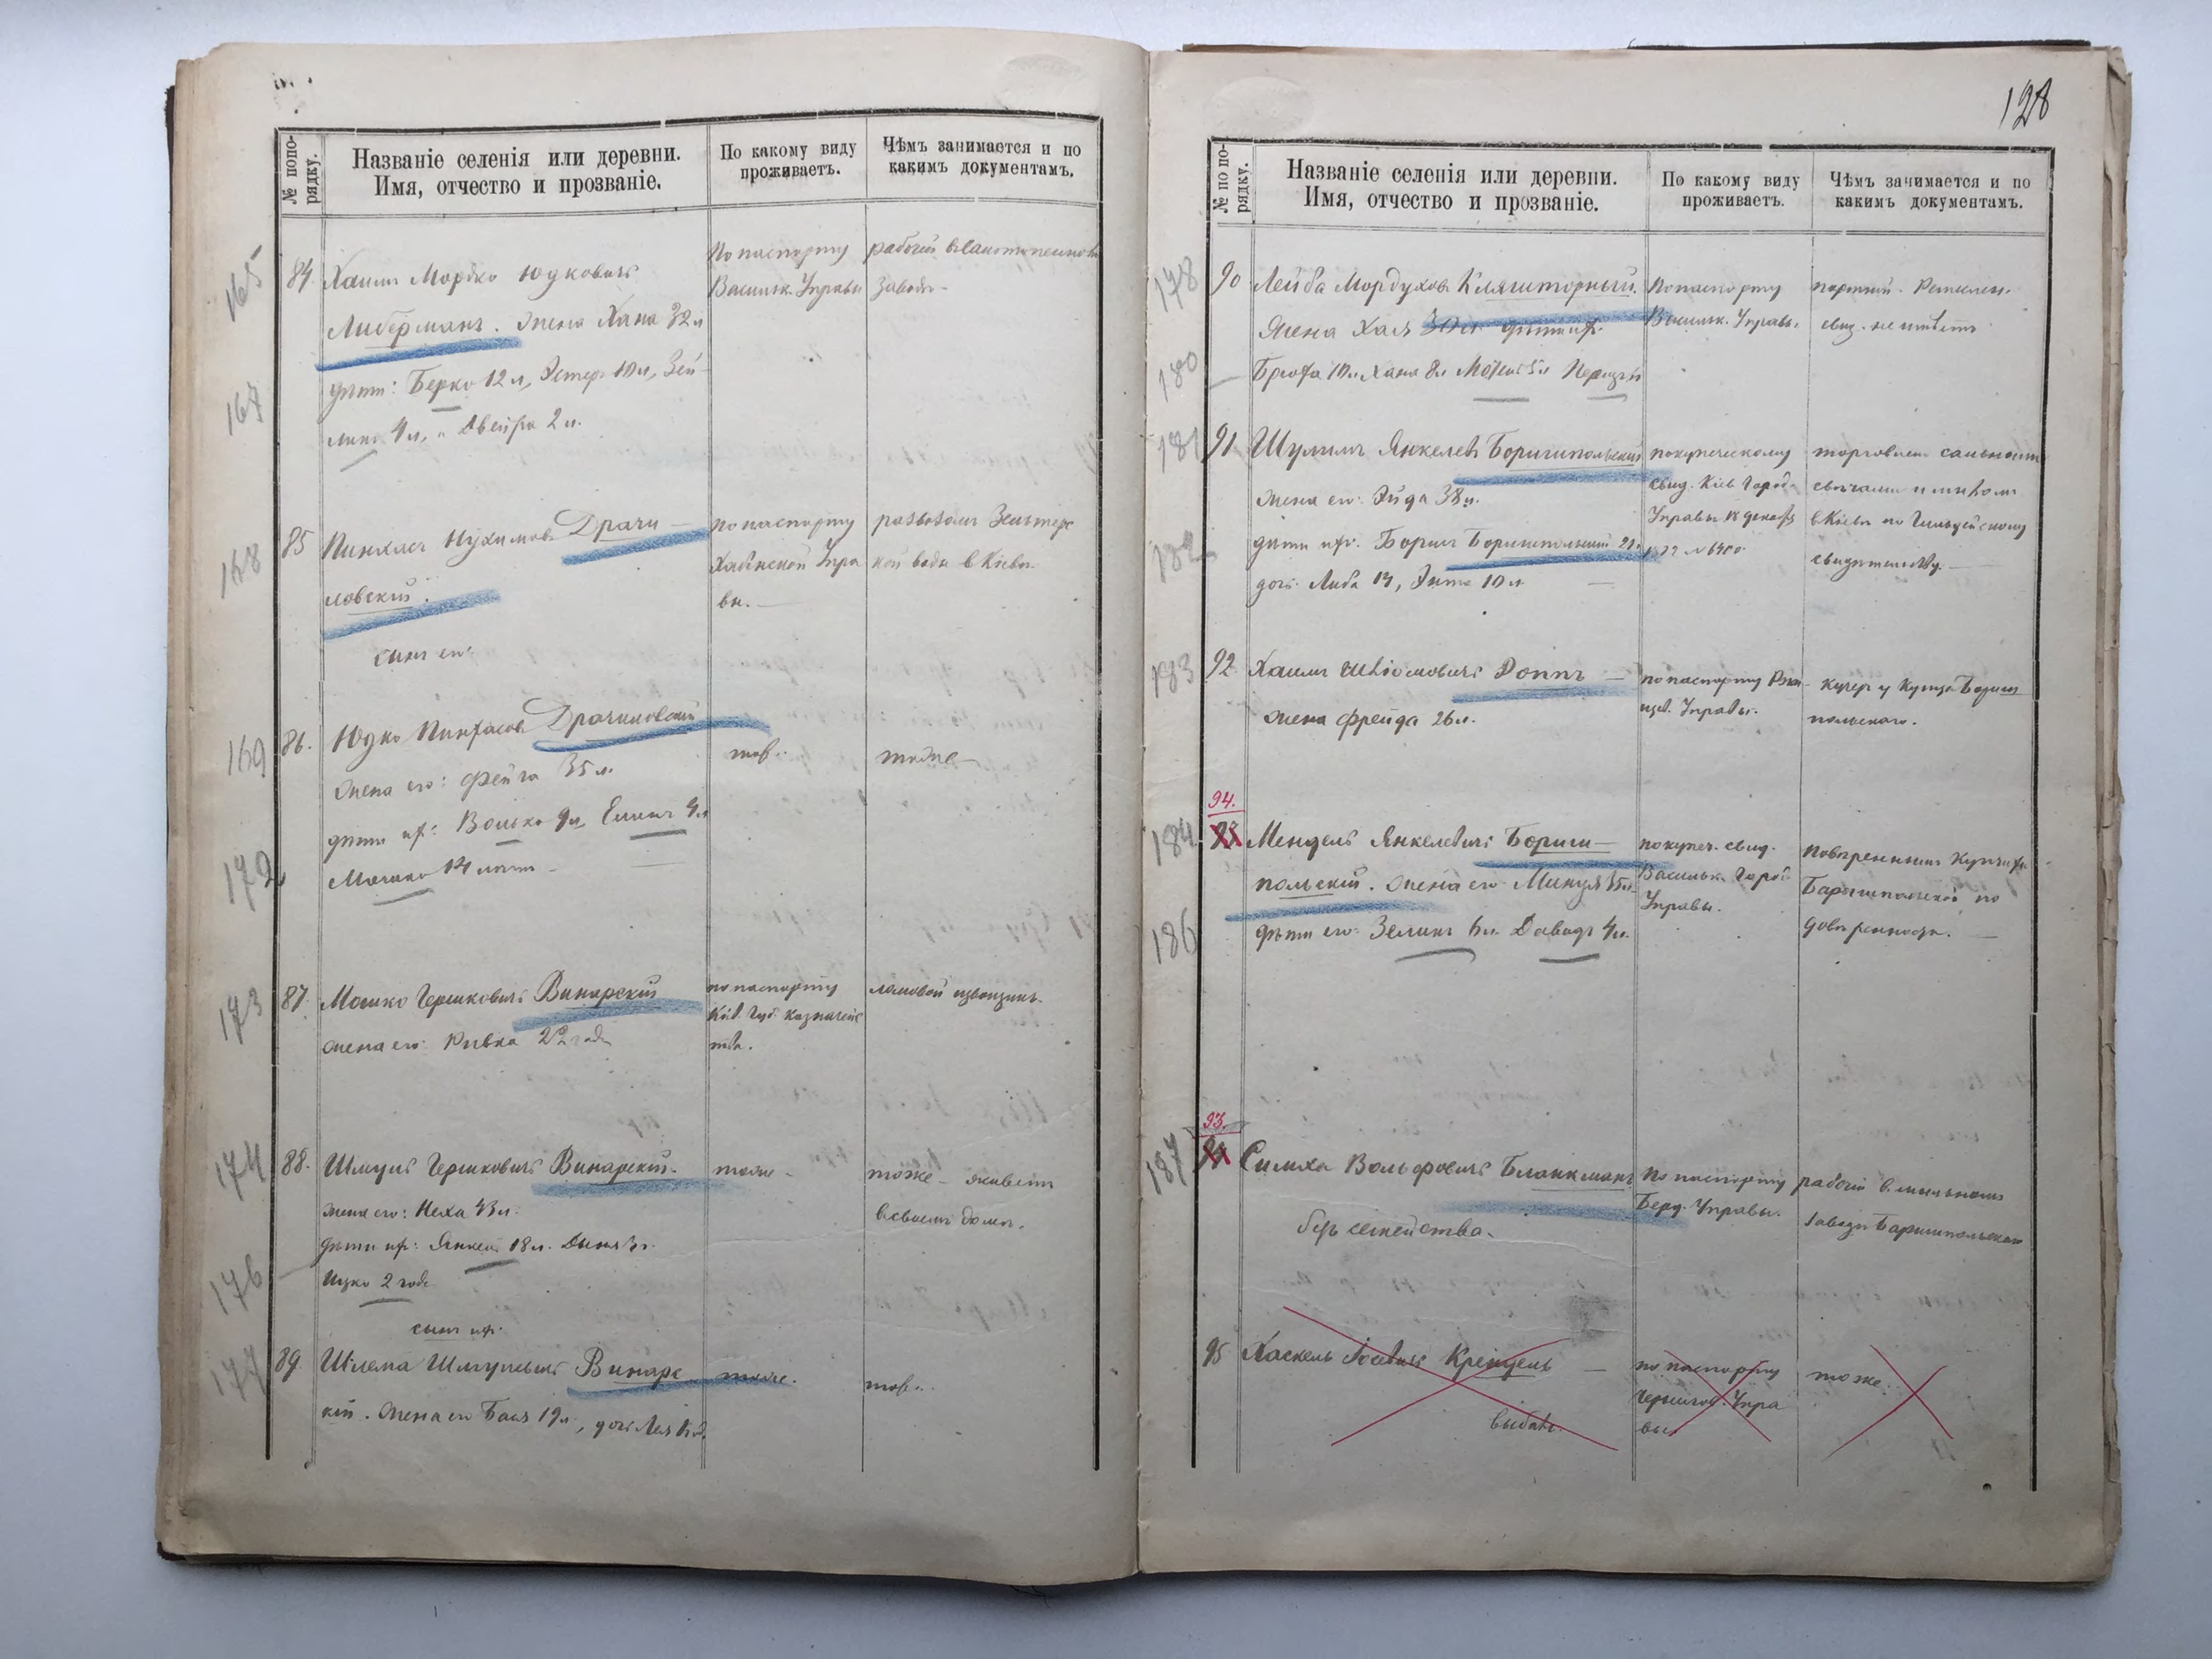 № попо-
рядку.
Названіе селенія или деревни.
Имя, отчество и прозваніе.
По какому виду
проживаетъ.
Чѣмъ занимается и по
какимъ документамъ.
165
84. Хаимъ Мордко Юдковичъ
Либерманъ. жена Хана 32 л
167
дѣти: Берко 12 л, Эстеръ 10 л, Зей-
4 л, Двейра 2 л.
По паспорту
Васильк. Управы
рабочій
заводѣ
168
85 Пинхасъ Нухимовъ Драчи-
ловскій.
по паспорту
Хабенской Упра
вы.
развозомъ Зельтерс
кой воды в Кіевѣ.
сынъ его:
169
86. Юдко Пинхасов Драчиловскій
жена его: Фейга 35 л.
дѣти их: Волько 9 л, 4 л
172
Мошко 14 лѣтъ
тож.
тоже
173
87. Мошко Гершковичъ Винарскій
жена его: Ривка 22 года
по паспорту
Кіев. Губ. казначейс
тва.
ломовой извощикъ.
174
88. Шмуль Гершковичъ Винарскій.
жена его: Неха 43 л.
дѣти их: Янкель 18 л.
176
Ицко 2 года
тоже
тоже - живетъ
в своемъ домѣ.
сынъ их.
177
89. Шлема Шмулевичъ Винарс
кій. жена его Бася 19 л, дочь Лея
тоже.
тож.
128
№ по по-
рядку.
Названіе селенія или деревни.
Имя, отчество и прозваніе.
По какому виду
проживаетъ.
Чѣмъ занимается и по
какимъ документамъ.
178
90 Лейба Мордухов Кляшторный.
жена Хая 30 л. дѣти их.
180
10 л. Хана 8 л
По паспорту
Васильк. Управы.
портной. Ремеслен.
свид. не имѣетъ
181
91 Шулимъ Янкелев Боришпольскій
жена его: Эйда 38 л.
182
дѣти их. Борисъ Боришпольскій 21
дочь. Либа 14, 10 л
по купеческому
свид. Кіев Город
Управы 18 декабр
торговлею сальными
свечами и мыломъ
в Кіевѣ по Гильдейскому
свидетельству.
183
92 Хаимъ Шліомовичъ Роппъ
жена Фрейда 26 л.
по паспорту
Управы.
Кучер у Купца Бориш
польскаго.
94.
184
93 Мендель Янкелевичъ Бориш-
польскій. жена его Миндля 35 л.
186
дѣти его: Зелигъ 6 л. Давидъ 4 л.
по купеч. свид.
Васильк. Город
Управы.
Повѣреннымъ Купчихи
Барышпольской по
довѣренности.
93.
187
94 Симха Вольфовичъ Бланкманъ
безъ семейства.
По паспорту
Берд. Управы.
рабочій в мыльномъ
заводѣ Баришпольскаго
95 Хаскель Іосевичъ Крейдель
выбылъ
по паспорту
Чернигов. Упра
вы.
тоже.